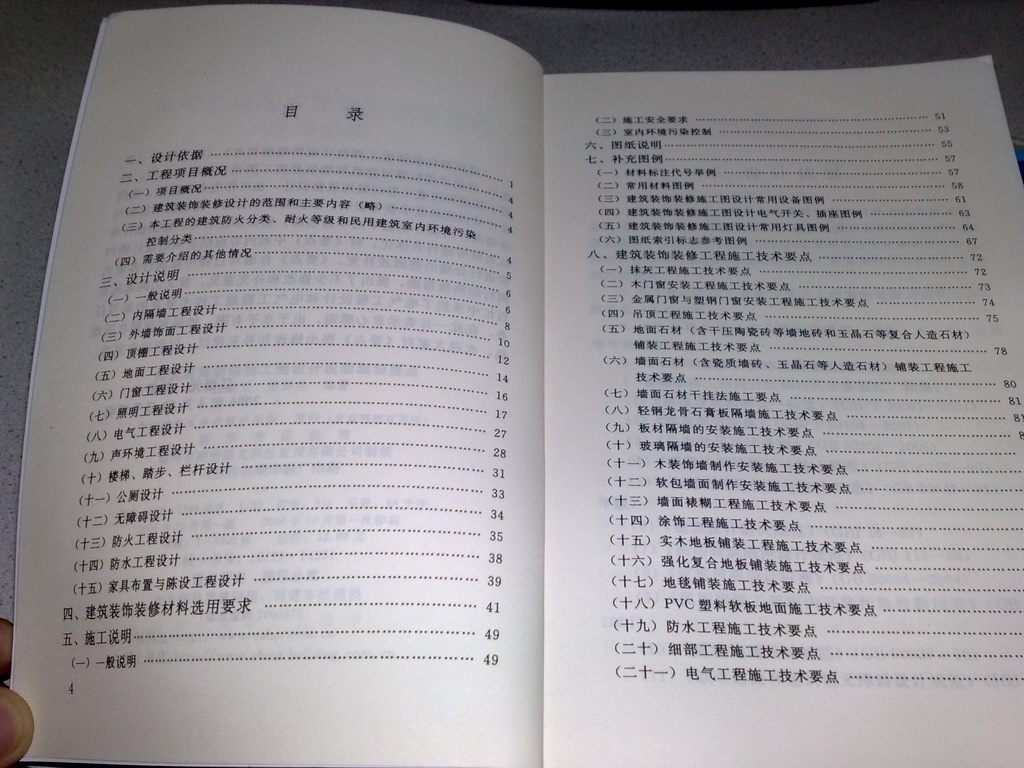 目 录
一、设计依据 1
二、工程项目概况 4
（一）项目概况 4
（二）建筑装饰装修设计的范围和主要内容（略） 4
（三）本工程的建筑防火分类、耐火等级和民用建筑室内环境污染
控制分类 4
（四）需要介绍的其他情况 5
三、设计说明 6
（一）一般说明 6
（二）内隔墙工程设计 8
（三）外墙饰面工程设计 10
（四）顶棚工程设计 12
（五）地面工程设计 14
（六）门窗工程设计 16
（七）照明工程设计 17
（八）电气工程设计 27
（九）声环境工程设计 28
（十）楼梯、踏步、栏杆设计 31
（十一）公厕设计 33
（十二）无障碍设计 34
（十三）防火工程设计 35
（十四）防水工程设计 38
（十五）家具布置与陈设工程设计 39
四、建筑装饰装修材料选用要求 41
五、施工说明 49
（一）一般说明 49
4
（二）施工安全要求 51
（三）室内环境污染控制 53
六、图纸说明 55
七、补充图例 57
（一）材料标注代号举例 57
（二）常用材料图例 58
（三）建筑装饰装修施工图设计常用设备图例 61
（四）建筑装饰装修施工图设计电气开关、插座图例 63
（五）建筑装饰装修施工图设计常用灯具图例 64
（六）图纸索引标志参考图例 67
八、建筑装饰装修工程施工技术要点 72
（一）抹灰工程施工技术要点 72
（二）木门窗安装工程施工技术要点 73
（三）金属门窗与塑钢门窗安装工程施工技术要点 74
（四）吊顶工程施工技术要点 75
（五）地面石材（含干压陶瓷砖等墙地砖和玉晶石等复合人造石材）
铺装工程施工技术要点 78
（六）墙面石材（含瓷质墙砖、玉晶石等人造石材）铺装工程施工
技术要点 80
（七）墙面石材干挂法施工要点 81
（八）轻钢龙骨石膏板隔墙施工技术要点 81
（九）板材隔墙的安装施工技术要点
（十）玻璃隔墙的安装施工技术要点
（十一）木装饰墙制作安装施工技术要点
（十二）软包墙面制作安装施工技术要点
（十三）墙面裱糊工程施工技术要点
（十四）涂饰工程施工技术要点
（十五）实木地板铺装工程施工技术要点
（十六）强化复合地板铺装施工技术要点
（十七）地毯铺装施工技术要点
（十八）PVC 塑料软板地面施工技术要点
（十九）防水工程施工技术要点
（二十）细部工程施工技术要点
（二十一）电气工程施工技术要点